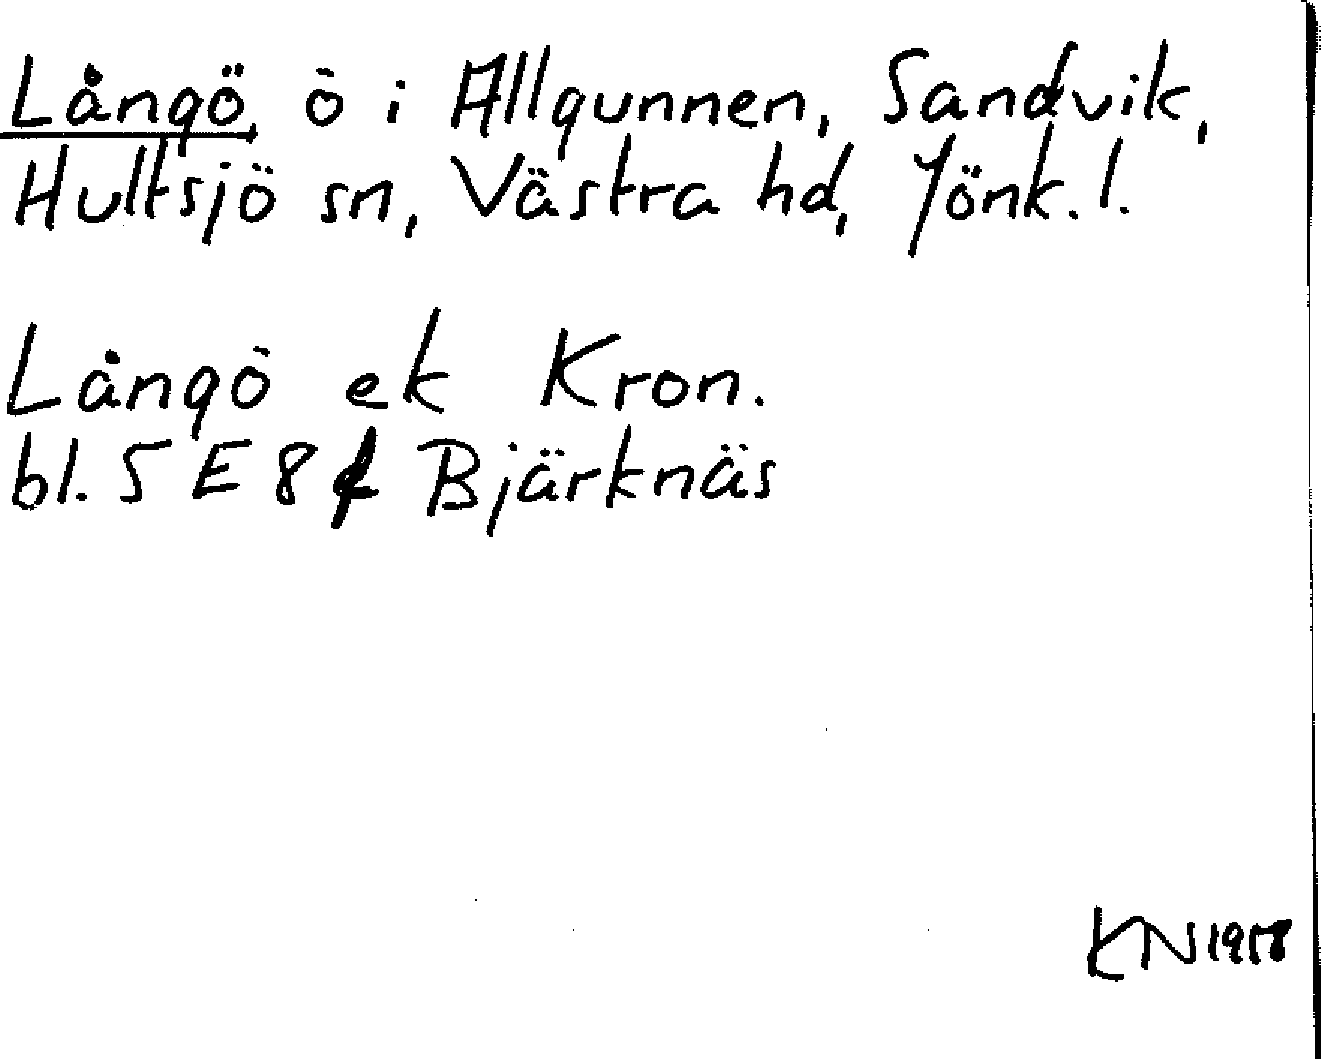 Långö, ö i Allgunnen, Sandvik,
Hultsjö sn, Västra hd, Jönk. l.
Långö ek Kron.
bl. 5 E 8 f Bjärknäs
KN 1958